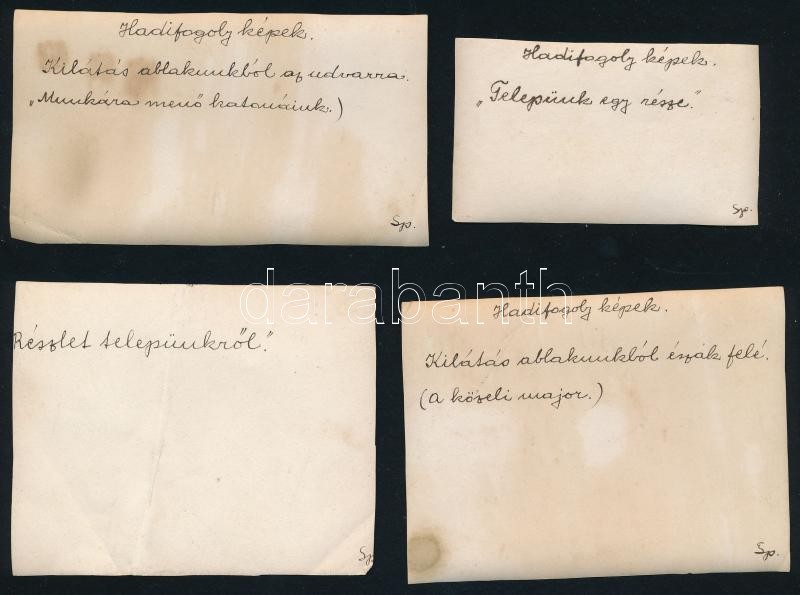 Hadifogoly képek.
Kilátás ablakunkból az udvarra.
„Munkára menő katonáink.)
Sp.
Hadifogoly képek.
„Telepünk egy része."
Sp.
Részlet telepünkről."
Sp.
Hadifogoly képek.
Kilátás ablakunkból észak felé.
(a közeli major.)
Sp.
darabanth